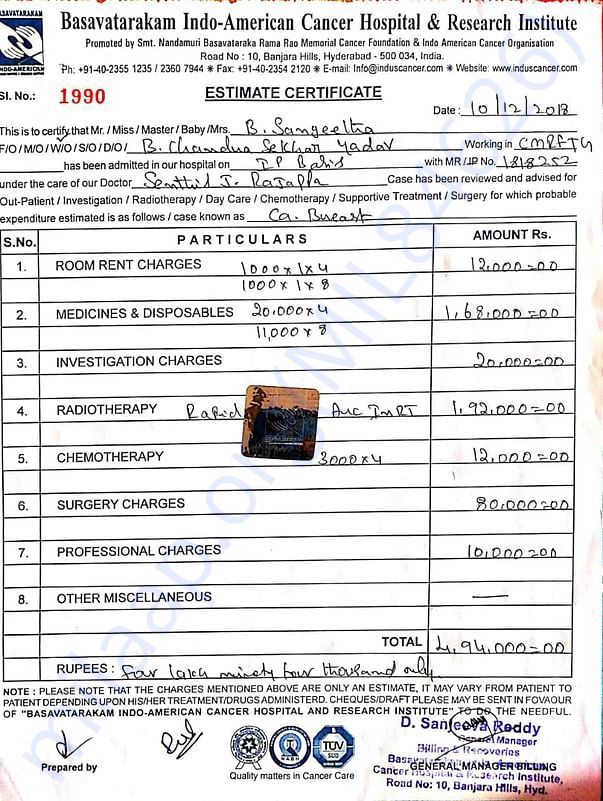 BASAVATARAKAM
INDO-AMERICAN
Basavatarakam Indo-American Cancer Hospital & Research Institute
Promoted by Smt. Nandamuri Basavataraka Rama Rao Memorial Cancer Foundation & Indo American Cancer Organisation
Road No : 10, Banjara Hills, Hyderabad - 500 034, India.
Ph: +91-40-2355 1235 / 2360 7944 * Fax: +91-40-2354 2120 * E-mail: Info@induscancer.com * Website: www.induscancer.com
Sl. No.: 1990 ESTIMATE CERTIFICATE
Date : 10/12/2018
This is to certify that Mr. / Miss / Master / Baby /Mrs. B. Sangeetha
F/O / M/O / W/O / S/O / D/O / B. Chandra Sekhar Yadav Working in CMRFTG
has been admitted in our hospital on IP Basis with MR / IP No. 1818252
under the care of our Doctor Senthil J. Rajappa Case has been reviewed and advised for
Out-Patient / Investigation / Radiotherapy / Day Care / Chemotherapy / Supportive Treatment / Surgery for which probable
expenditure estimated is as follows / case known as Ca. Breast
S.No. PARTICULARS AMOUNT Rs.
1. ROOM RENT CHARGES 1000x1x4 12,000=00
1000x1x8
2. MEDICINES & DISPOSABLES 20,000x4 1,68,000=00
11,000x8
3. INVESTIGATION CHARGES 20,000=00
4. RADIOTHERAPY Rapid Arc IMRT 1,92,000=00
5. CHEMOTHERAPY 3000x4 12,000=00
6. SURGERY CHARGES 80,000=00
7. PROFESSIONAL CHARGES 10,000=00
8. OTHER MISCELLANEOUS —
TOTAL 4,94,000=00
RUPEES : Four lakh ninety four thousand only
NOTE : PLEASE NOTE THAT THE CHARGES MENTIONED ABOVE ARE ONLY AN ESTIMATE, IT MAY VARY FROM PATIENT TO
PATIENT DEPENDING UPON HIS/HER TREATMENT/DRUGS ADMINISTERD. CHEQUES/DRAFT PLEASE MAY BE SENT IN FOVAOUR
OF "BASAVATARAKAM INDO-AMERICAN CANCER HOSPITAL AND RESEARCH INSTITUTE" TO DO THE NEEDFUL.
D. Sanjeeva Reddy
General Manager
Billing & Recoveries
NABH
TUV
SUD
Prepared by
Quality matters in Cancer Care
GENERAL MANAGER BILLING
Cancer Hospital & Research Institute,
Road No: 10, Banjara Hills, Hyd.